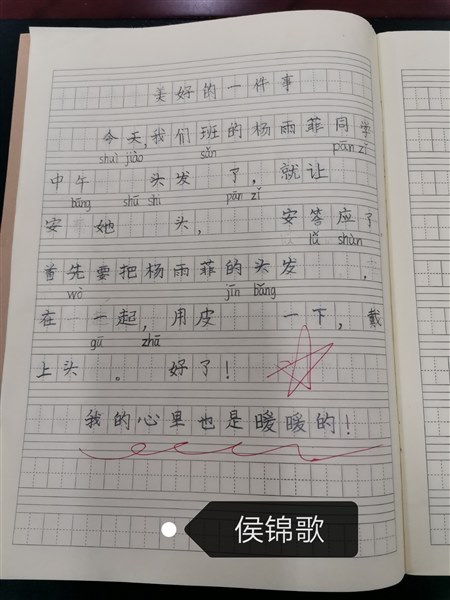 美好的一件事
今天,我们班的杨雨菲同学
shuì jiào sǎn pān zǐ
中午 头发 了, 就让
bāng shū shi pān zǐ
安 她 头, 安答应了
shùn
首先要把杨雨菲的头发 ,
wò jǐn bǎng
在 一起,用皮 一下,戴
gū zhā
上头 。 好了!
我的心里也是暖暖的!
侯锦歌